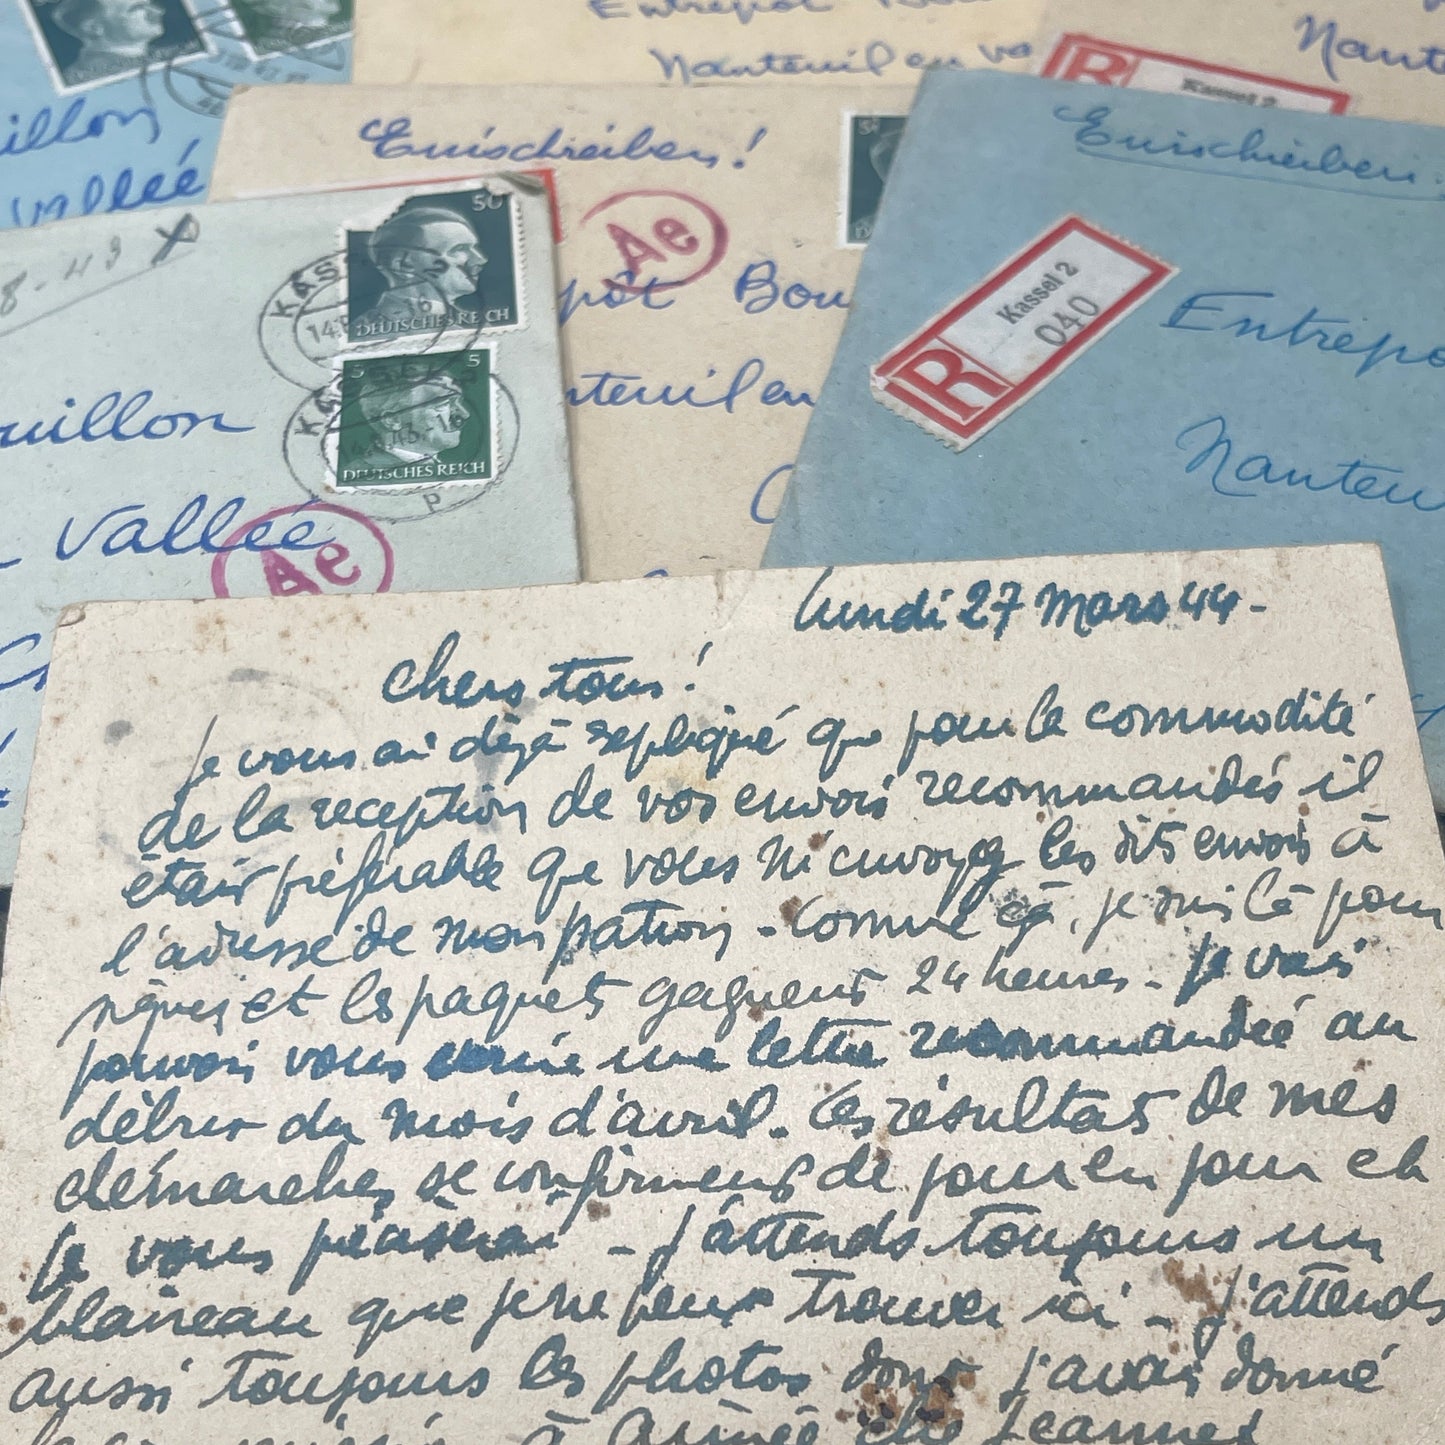 Entrepôt
Nanteuil en va
Kassel 2
Nant
R
illon
vallée
Einschreiben!
Einschreiben!
Ae
50
DEUTSCHES REICH
8-43
pôt Bou
nteuil en
5 5
DEUTSCHES REICH
P
uillon
Vallée
Ae
R
Kassel 2
040
Entrepo
Nanteu
lundi 27 mars 44-
chers tous!
Je vous ai déjà expliqué que pour la commodité
de la reception de vos envois recommandés il
était préférable que vous m'envoyez les dits envois à
l'adresse de mon patron - comme ça, je suis là pour
signer et les paquets gagnent 24 heures - Je vais
pouvoir vous écrire une lettre recommandée au
début du mois d'avril. Les résultats de mes
démarches se confirment de jour en jour et
Je vous préciserai - J'attends toujours un
blaireau que je ne peux trouver ici - J'attends
aussi toujours les photos dont j'avais donné
à